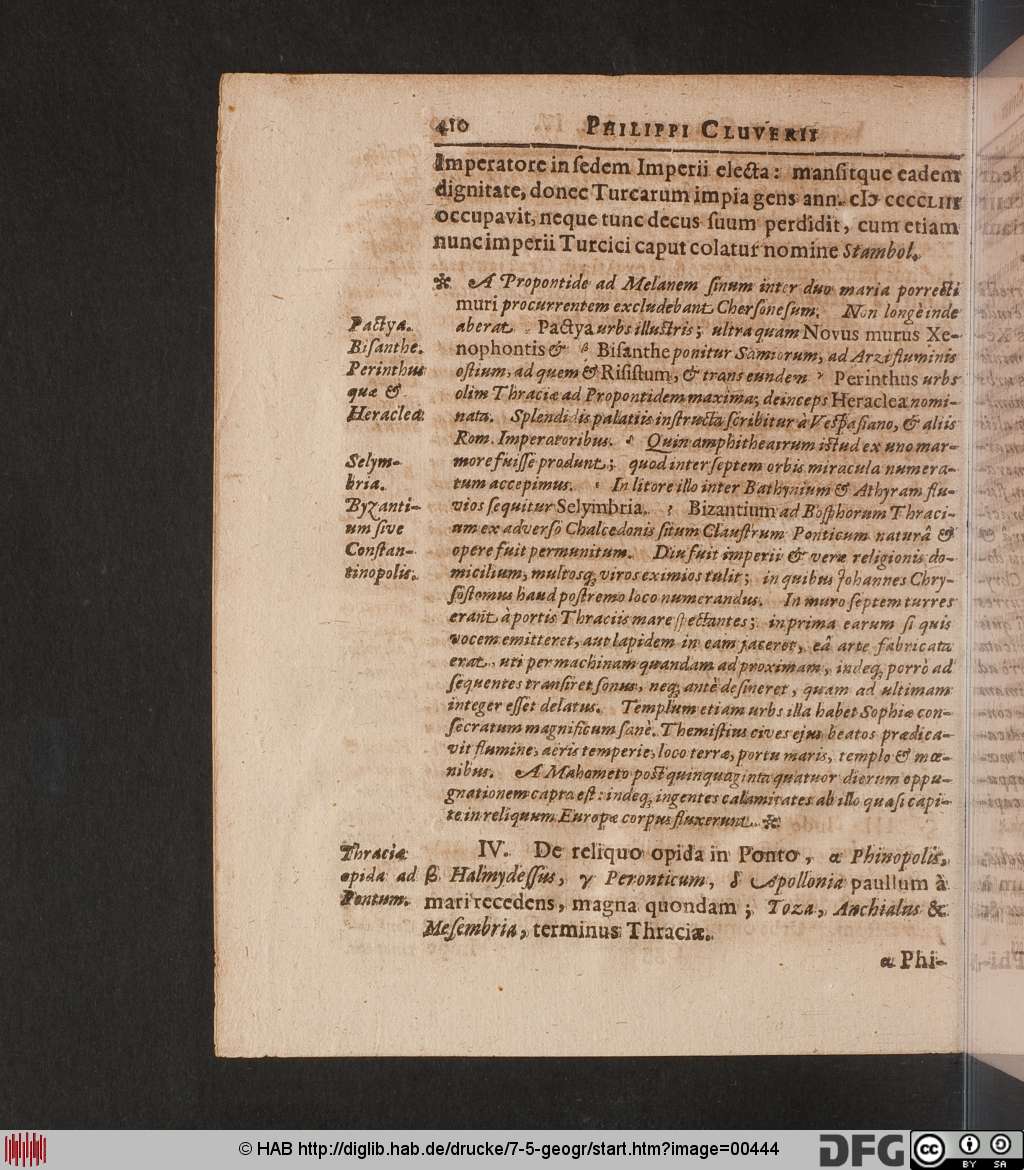 410 PHILIPPI CLUVERII
Imperatore in sedem Imperii electa: mansitque eadem
dignitate, donec Turcarum impia gens ann. cIↃ ccccLIII
occupavit, neque tunc decus suum perdidit, cum etiam
nunc imperii Turcici caput colatur nomine Stambol.
* A Propontide ad Melanem sinum inter duo maria porrecti
muri procurrentem excludebant Chersonesum. Non longè inde
Pactya. aberat Pactya urbs illustris; ultra quam Novus murus Xe-
Bisanthe. nophontis & β Bisanthe ponitur Samiorum, ad Arzi fluminis
Perinthus ostium, ad quem & Risistum, & trans eundem γ Perinthus urbs
quæ & olim Thraciæ ad Propontidem maxima; deinceps Heraclea nomi-
Heraclea. nata. Splendidis palatiis instructa scribitur à Vespasiano, & aliis
Rom. Imperatoribus. δ Quin amphitheatrum istud ex uno mar-
Selym- more fuisse produnt; quod inter septem orbis miracula numera-
bria. tum accepimus. In litore illo inter Bathynium & Athyram flu-
Byzanti- vios sequitur Selymbria. Bizantium ad Bosphorum Thraci-
um sive um ex adverso Chalcedonis situm Claustrum Ponticum naturâ &
Constan- opere fuit permunitum. Diu fuit imperii & veræ religionis do-
tinopolis. micilium, multosq; viros eximios tulit; in quibus Johannes Chry-
sostomus haud postremo loco numerandus. In muro septem turres
erant à portis Thraciis mare spectantes; in prima earum si quis
vocem emitteret, aut lapidem in eam jaceret, eâ arte fabricata
erat, uti per machinam quandam ad proximam, indeq; porrò ad
sequentes transiret sonus, neq; antè desineret, quam ad ultimam
integer esset delatus. Templum etiam urbs illa habet Sophiæ con-
secratum magnificum sanè. Themistius cives ejus beatos prædica-
vit flumine, aëris temperie, loco terræ, portu maris, templo & mœ-
nibus. A Mahometo post quinquaginta quatuor dierum oppu-
gnationem capta est: indeq; ingentes calamitates ab illo quasi capi-
te in reliquum Europæ corpus fluxerunt. *
Thraciæ IV. De reliquo opida in Ponto, α Phinopolis,
opida ad β Halmydessus, γ Peronticum, δ Apollonia paullum à
Pontum. mari recedens, magna quondam; Toza, Anchialus &
Mesembria, terminus Thraciæ.
α Phi-
© HAB http://diglib.hab.de/drucke/7-5-geogr/start.htm?image=00444
DFG
cc BY SA